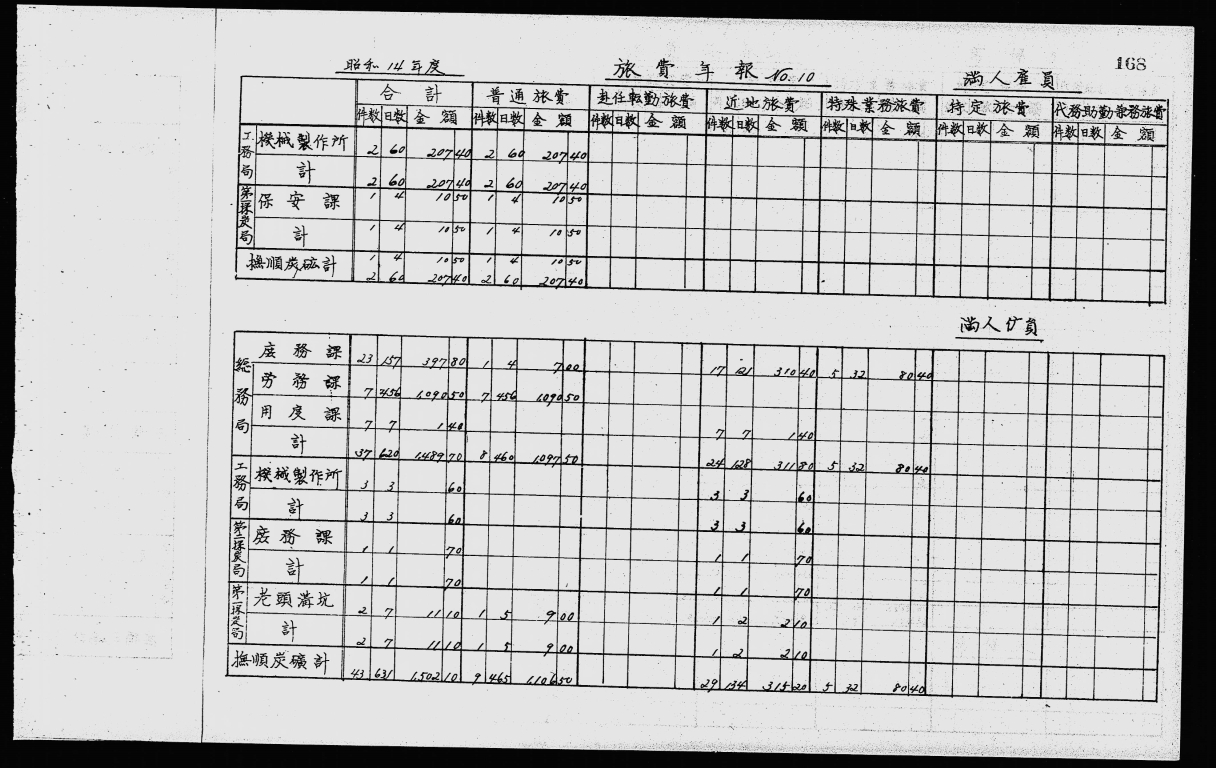 168
昭和14年度 旅費年報 No.10 満人雇員
合計 普通旅費 赴任転勤旅費 近地旅費 特殊業務旅費 特定旅費 代務助勤兼務旅費
件数 日数 金額 件数 日数 金額 件数 日数 金額 件数 日数 金額 件数 日数 金額 件数 日数 金額 件数 日数 金額
工務局 機械製作所 2 60 207 40 2 60 207 40
計 2 60 207 40 2 60 207 40
保安課 1 4 10 50 1 4 10 50
計 1 4 10 50 1 4 10 50
撫順炭砿計 1 4 10 50 1 4 10 50
2 60 207 40 2 60 207 40
満人傭員
総務局 庶務課 23 157 397 80 1 4 7 00 17 121 310 40 5 32 80 40
労務課 7 456 1,090 50 7 456 1,090 50
用度課 7 7 1 40 7 7 1 40
計 37 620 1,489 70 8 460 1,097 50 24 128 311 80 5 32 80 40
工務局 機械製作所 3 3 60 3 3 60
計 3 3 60 3 3 60
庶務課 1 1 70 1 1 70
計 1 1 70 1 1 70
老頭溝坑 2 7 11 10 1 5 9 00 1 2 2 10
計 2 7 11 10 1 5 9 00 1 2 2 10
撫順炭礦計 43 631 1,502 10 9 465 1,106 50 29 134 315 20 5 32 80 40